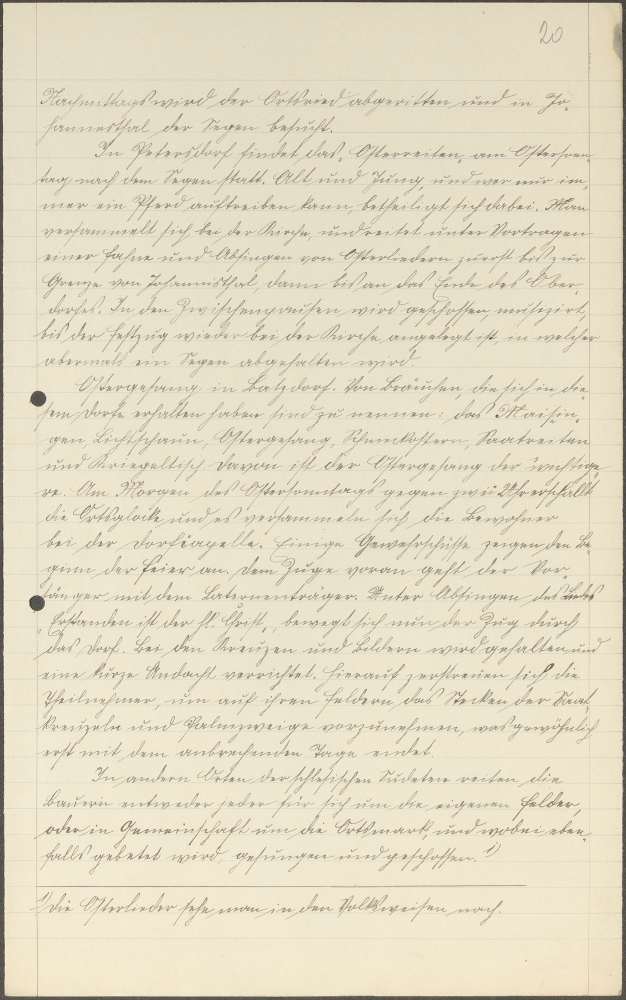 20
Nachmittags wird der Ortsried abgeritten und in Jo-
hannesthal der Segen besucht.
In Petersdorf findet das „Osterreiten“ am Ostersonn-
tag nach dem Segen statt. Alt und Jung, und wer nur im-
mer ein Pferd auftreiben kann, betheiligt sich dabei. Man
versammelt sich bei der Kirche, und reitet unter Vortragen
einer Fahne und Absingen von Osterliedern zuerst bis zur
Grenze von Johannesthal, dann bis an das Ende des Ober-
dorfes. In den Zwischenpausen wird geschossen, musizirt,
bis der Festzug wieder bei der Kirche angelegt ist, in welcher
abermals ein Segen abgehalten wird.
Ostergesang in Batzdorf. Von Bräuchen, die sich in die-
sem Dorfe erhalten haben sind zu nennen: das Maisin-
gen Lichtschaun, Ostergesang, Schmeckostern, Saatreiten
und Kriegeltisch. Davon ist der Ostergesang der wichtige-
re. Am Morgen des Ostersonntags gegen zwei Uhr erschallt
die Ortsglocke und es versammeln sich die Bewohner
bei der Dorfkapelle. Einige Gewehrschüsse zeigen den Be-
ginn der Feier an. Dem Zuge voran geht der Vor-
sänger mit dem Laternenträger. Unter Absingen des Liedes
„Erstanden ist der hl. Christ“, bewegt sich nun der Zug durch
das Dorf. Bei den Kreuzen und Bildern wird gehalten und
eine kurze Andacht verrichtet. Hierauf zerstreuen sich die
Theilnehmer, um auf ihren Feldern das Stecken der Saat-
kreuzeln und Palmzweige vorzunehmen, was gewöhnlich
erst mit dem anbrechenden Tage endet.
In andern Orten der schlesischen Sudeten reiten die
Bauern entweder jeder für sich um die eigenen Felder,
oder in Gemeinschaft um die Ortsmark, und wobei eben-
falls gebetet wird, gesungen und geschossen. 1)
1) Die Osterlieder sehe man in den Volksweisen nach.